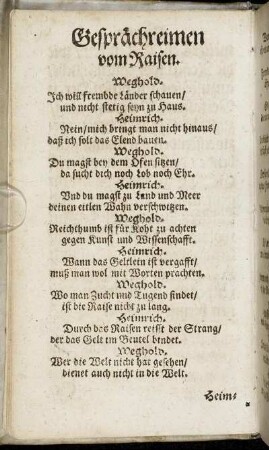 Gesprächreimen
vom Raisen.
Weghold.
Ich will frembde Länder schauen/
und nicht stetig seyn zu Haus.
Heinrich.
Nein/mich bringt man nicht hinaus/
daß ich solt das Elend bauen.
Weghold.
Du magst bey dem Ofen sitzen/
da sucht dich noch Lob noch Ehr.
Heinrich.
Vnd du magst zu Land und Meer
deinen eitlen Wahn verschwetzen.
Weghold.
Reichthumb ist für Koht zu achten
gegen Kunst und Wissenschafft.
Heinrich.
Wann das Geltlein ist vergafft/
muß man wol mit Worten prachten.
Weghold.
Wo man Zucht und Tugend findet/
ist die Raise nicht zu lang.
Heinrich.
Durch das Raisen reisst der Strang/
der das Gelt im Beutel bindet.
Weghold.
Wer die Welt nicht hat gesehen/
dienet auch nicht in die Welt.
Heim-